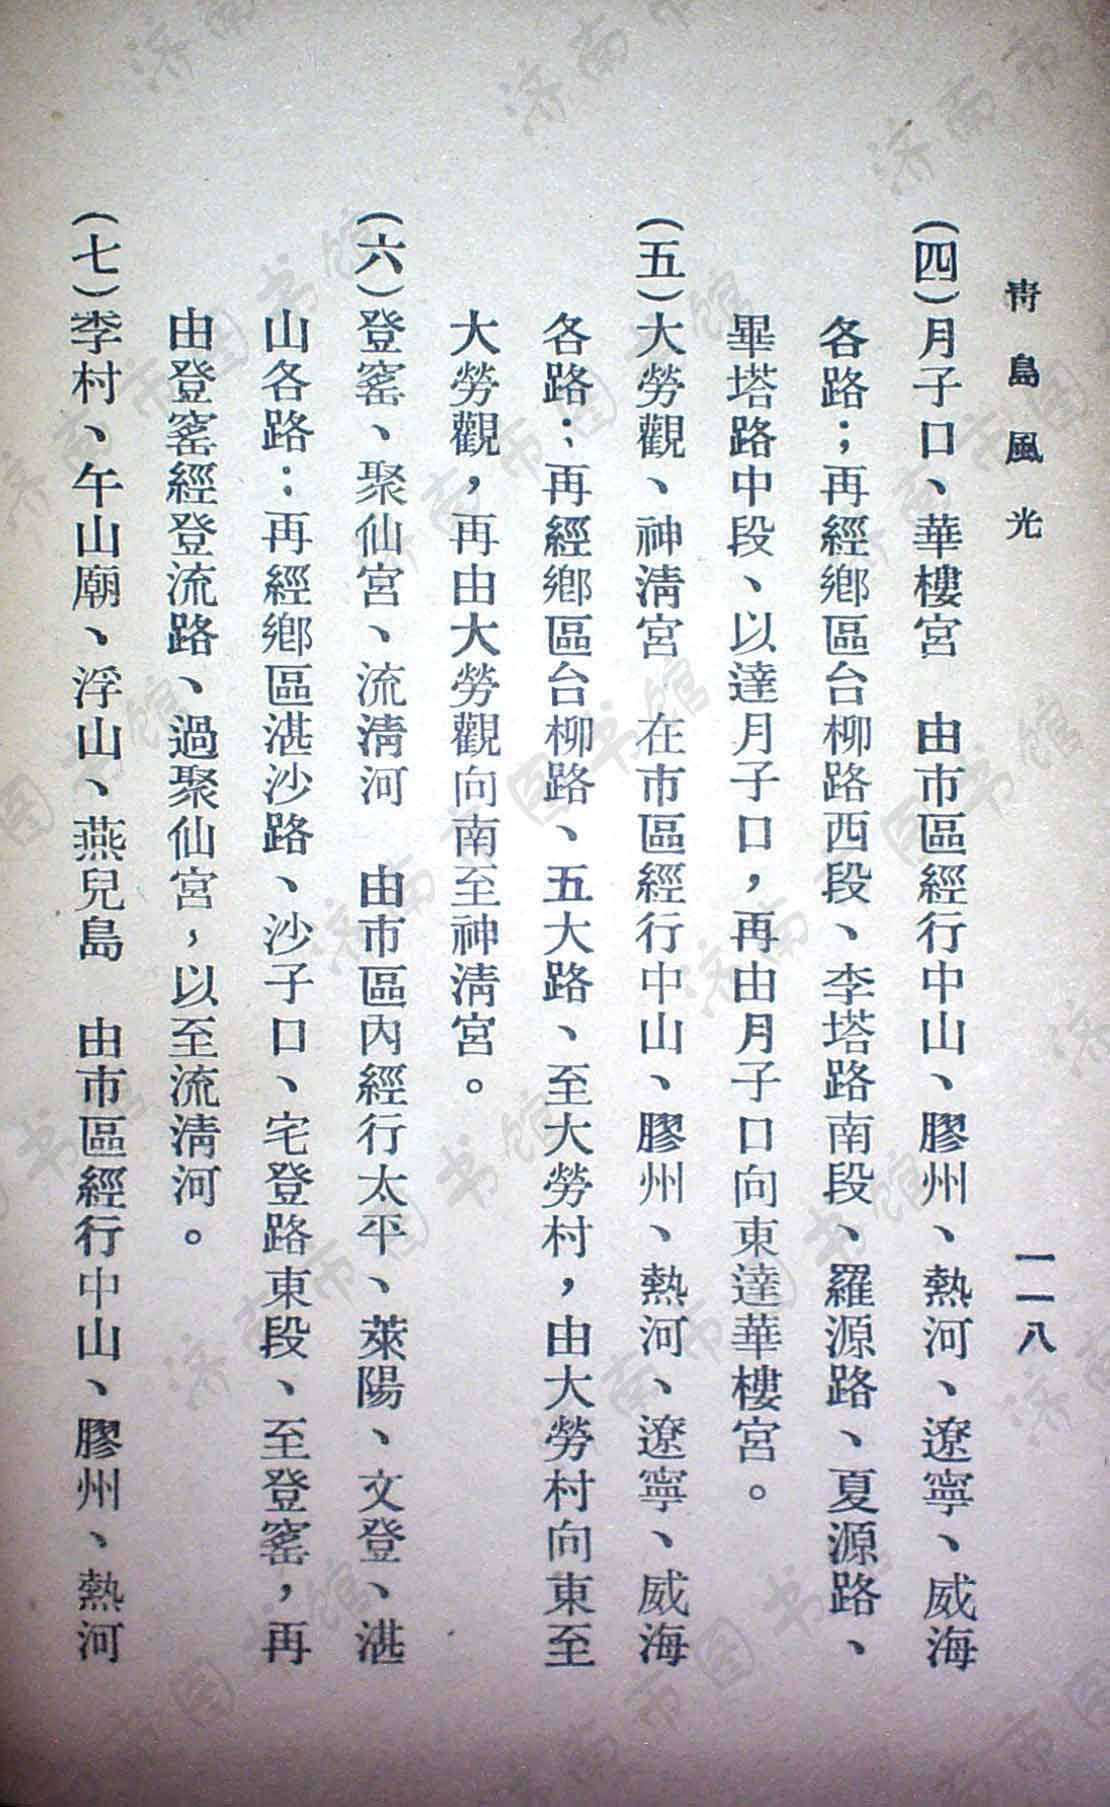 靑島風光
一一八
(四)月子口、華樓宮　由市區經行中山、膠州、熱河、遼寧、威海
各路；再經鄉區台柳路西段、李塔路南段、羅源路、夏源路、
畢塔路中段、以達月子口，再由月子口向東達華樓宮。
(五)大勞觀、神淸宮　在市區經行中山、膠州、熱河、遼寧、威海
各路；再經鄉區台柳路、五大路、至大勞村，由大勞村向東至
大勞觀，再由大勞觀向南至神淸宮。
(六)登窰、聚仙宮、流淸河　由市區內經行太平、萊陽、文登、湛
山各路：再經鄉區湛沙路、沙子口、宅登路東段、至登窰，再
由登窰經登流路、過聚仙宮，以至流淸河。
(七)李村、午山廟、浮山、燕兒島　由市區經行中山、膠州、熱河
济南市图书馆